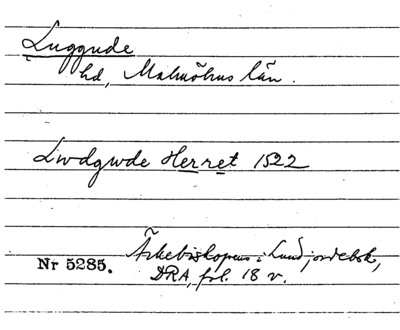 Luggude
hd, Malmöhus län.
Lwdgwde Herret 1522
Nr 5285.
Ärkebiskopens i Lund jordebok,
DRA, fol. 18 v.